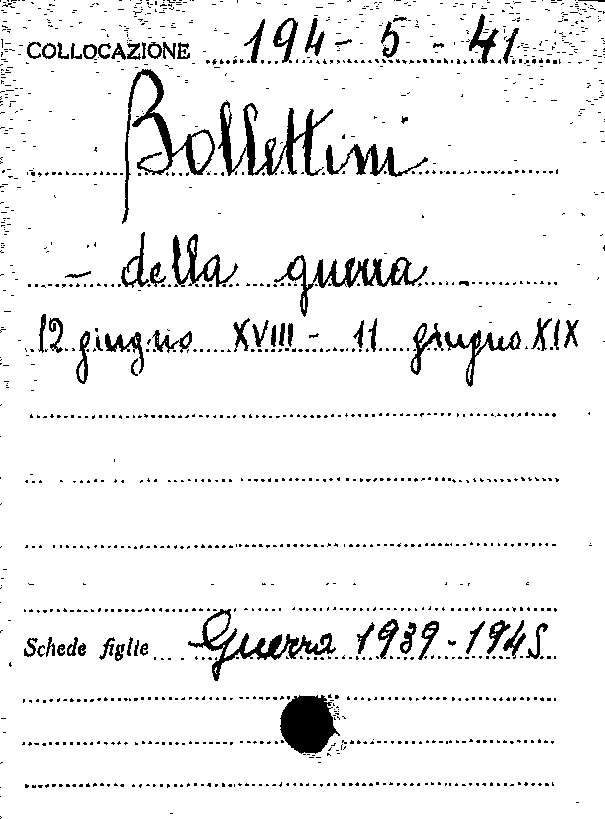 COLLOCAZIONE 194 - 5 - 41
Bollettini
- della guerra -
12 giugno XVIII - 11 giugno XIX
Schede figlie Guerra 1939-1945